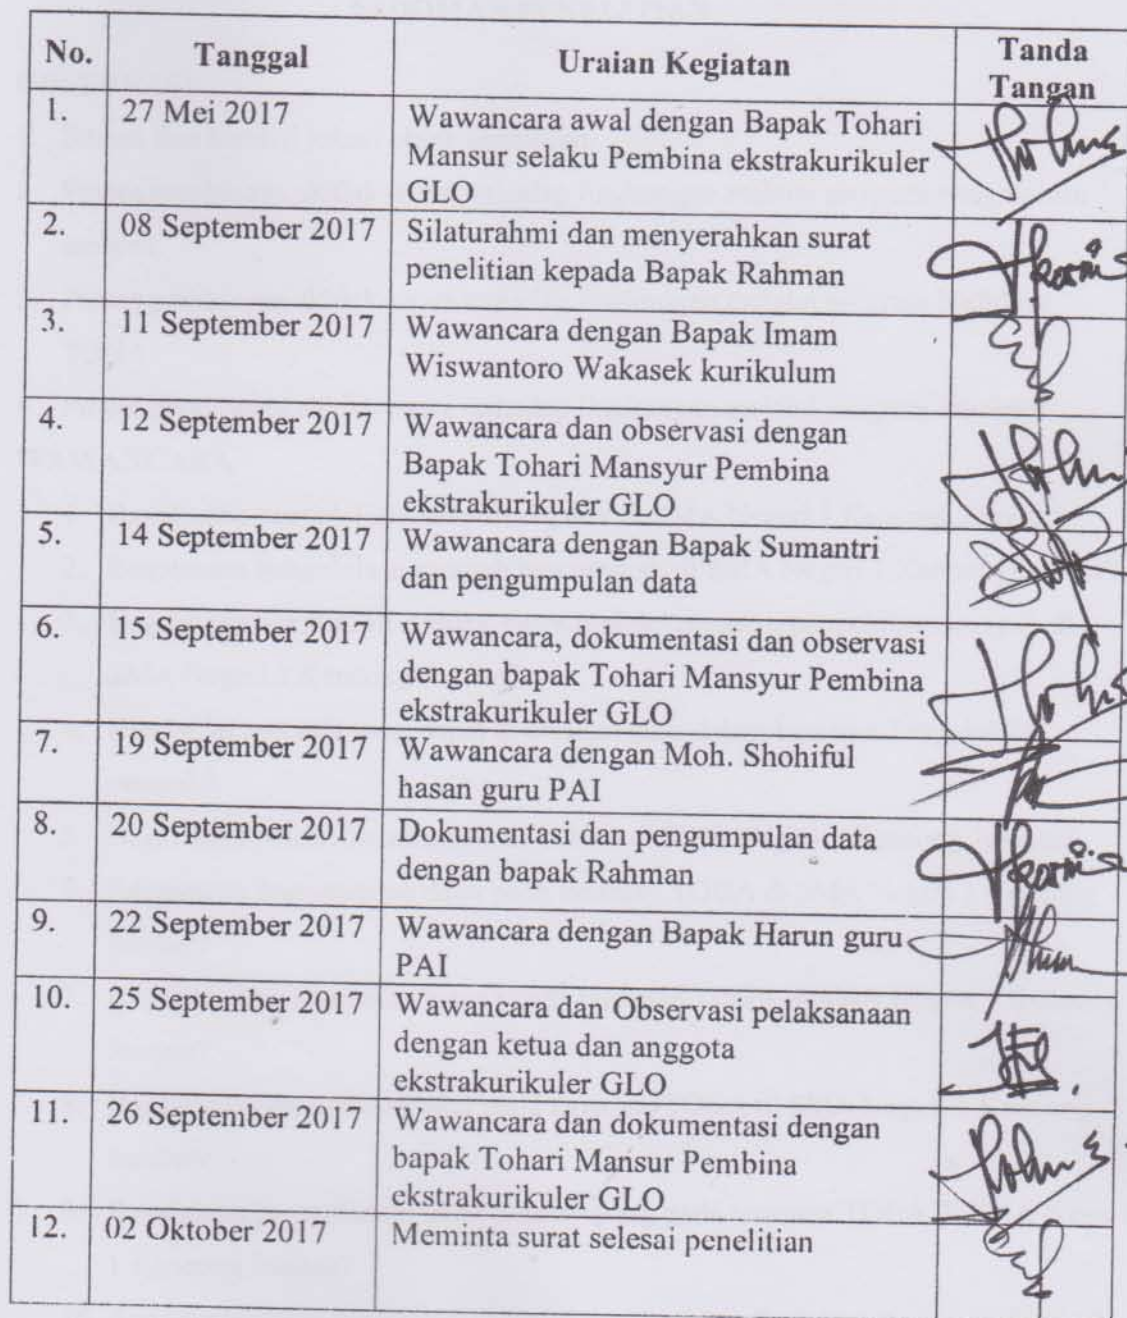 No. Tanggal Uraian Kegiatan Tanda
Tangan
1. 27 Mei 2017 Wawancara awal dengan Bapak Tohari
Mansur selaku Pembina ekstrakurikuler
GLO
2. 08 September 2017 Silaturahmi dan menyerahkan surat
penelitian kepada Bapak Rahman
3. 11 September 2017 Wawancara dengan Bapak Imam
Wiswantoro Wakasek kurikulum
4. 12 September 2017 Wawancara dan observasi dengan
Bapak Tohari Mansyur Pembina
ekstrakurikuler GLO
5. 14 September 2017 Wawancara dengan Bapak Sumantri
dan pengumpulan data
6. 15 September 2017 Wawancara, dokumentasi dan observasi
dengan bapak Tohari Mansyur Pembina
ekstrakurikuler GLO
7. 19 September 2017 Wawancara dengan Moh. Shohiful
hasan guru PAI
8. 20 September 2017 Dokumentasi dan pengumpulan data
dengan bapak Rahman
9. 22 September 2017 Wawancara dengan Bapak Harun guru
PAI
10. 25 September 2017 Wawancara dan Observasi pelaksanaan
dengan ketua dan anggota
ekstrakurikuler GLO
11. 26 September 2017 Wawancara dan dokumentasi dengan
bapak Tohari Mansur Pembina
ekstrakurikuler GLO
12. 02 Oktober 2017 Meminta surat selesai penelitian